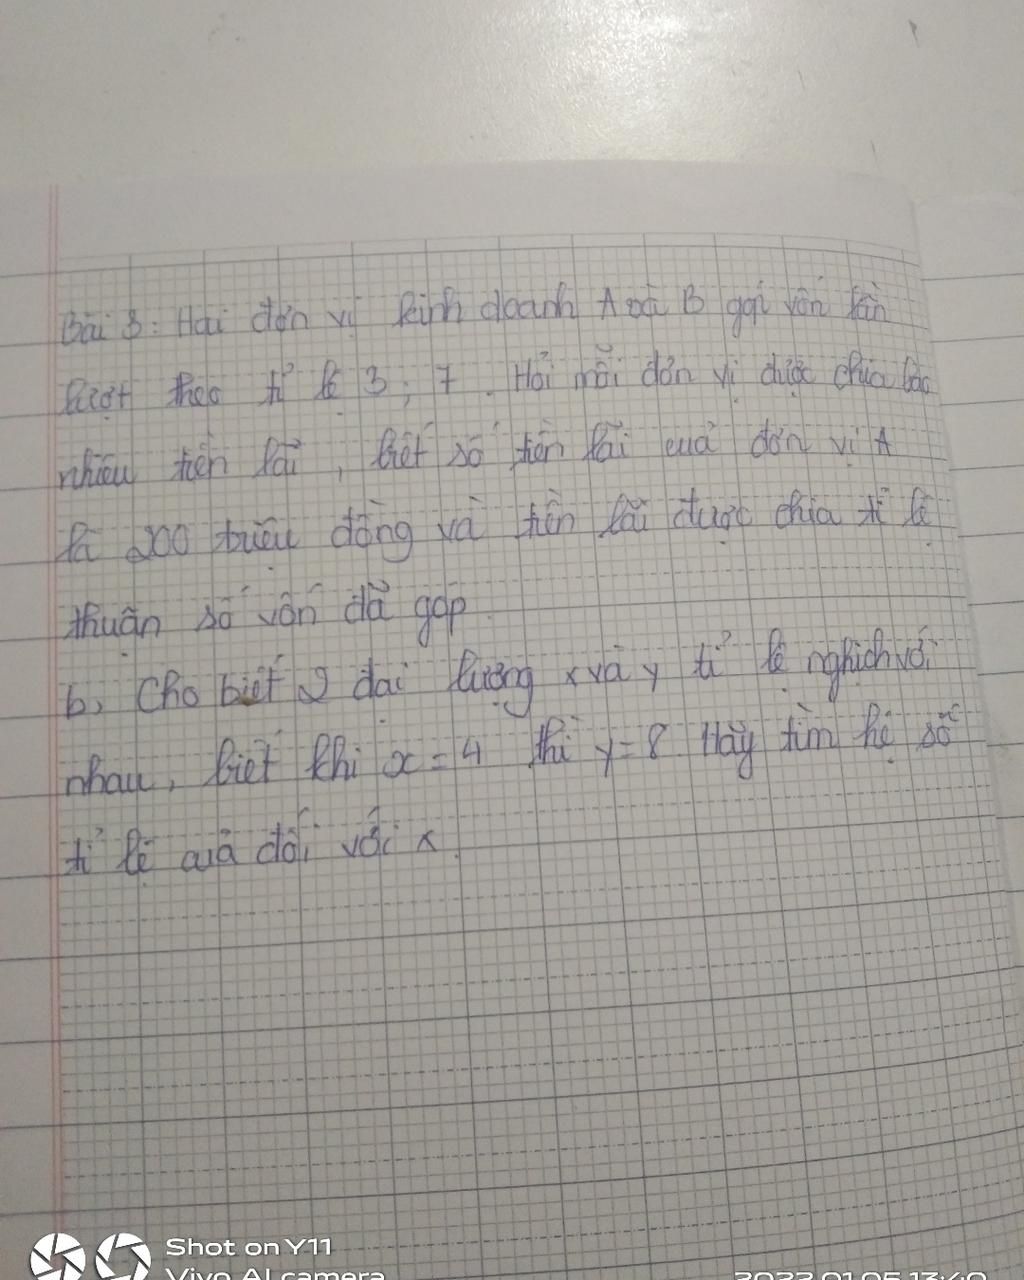 Bài 3: Hai đơn vị kinh doanh A và B góp vốn lần
lượt theo tỉ lệ 3; 7. Hỏi mỗi đơn vị được chia bao
nhiêu tiền lãi, biết số tiền lãi của đơn vị A
là 200 triệu đồng và tiền lãi được chia tỉ lệ
thuận số vốn đã góp.
b, Cho biết 2 đại lượng x và y tỉ lệ nghịch với
nhau, biết khi x = 4 thì y = 8 Hãy tìm hệ số
tỉ lệ của đối với x.
Shot on Y11
Vivo AI camera
2023.01.05 13:40